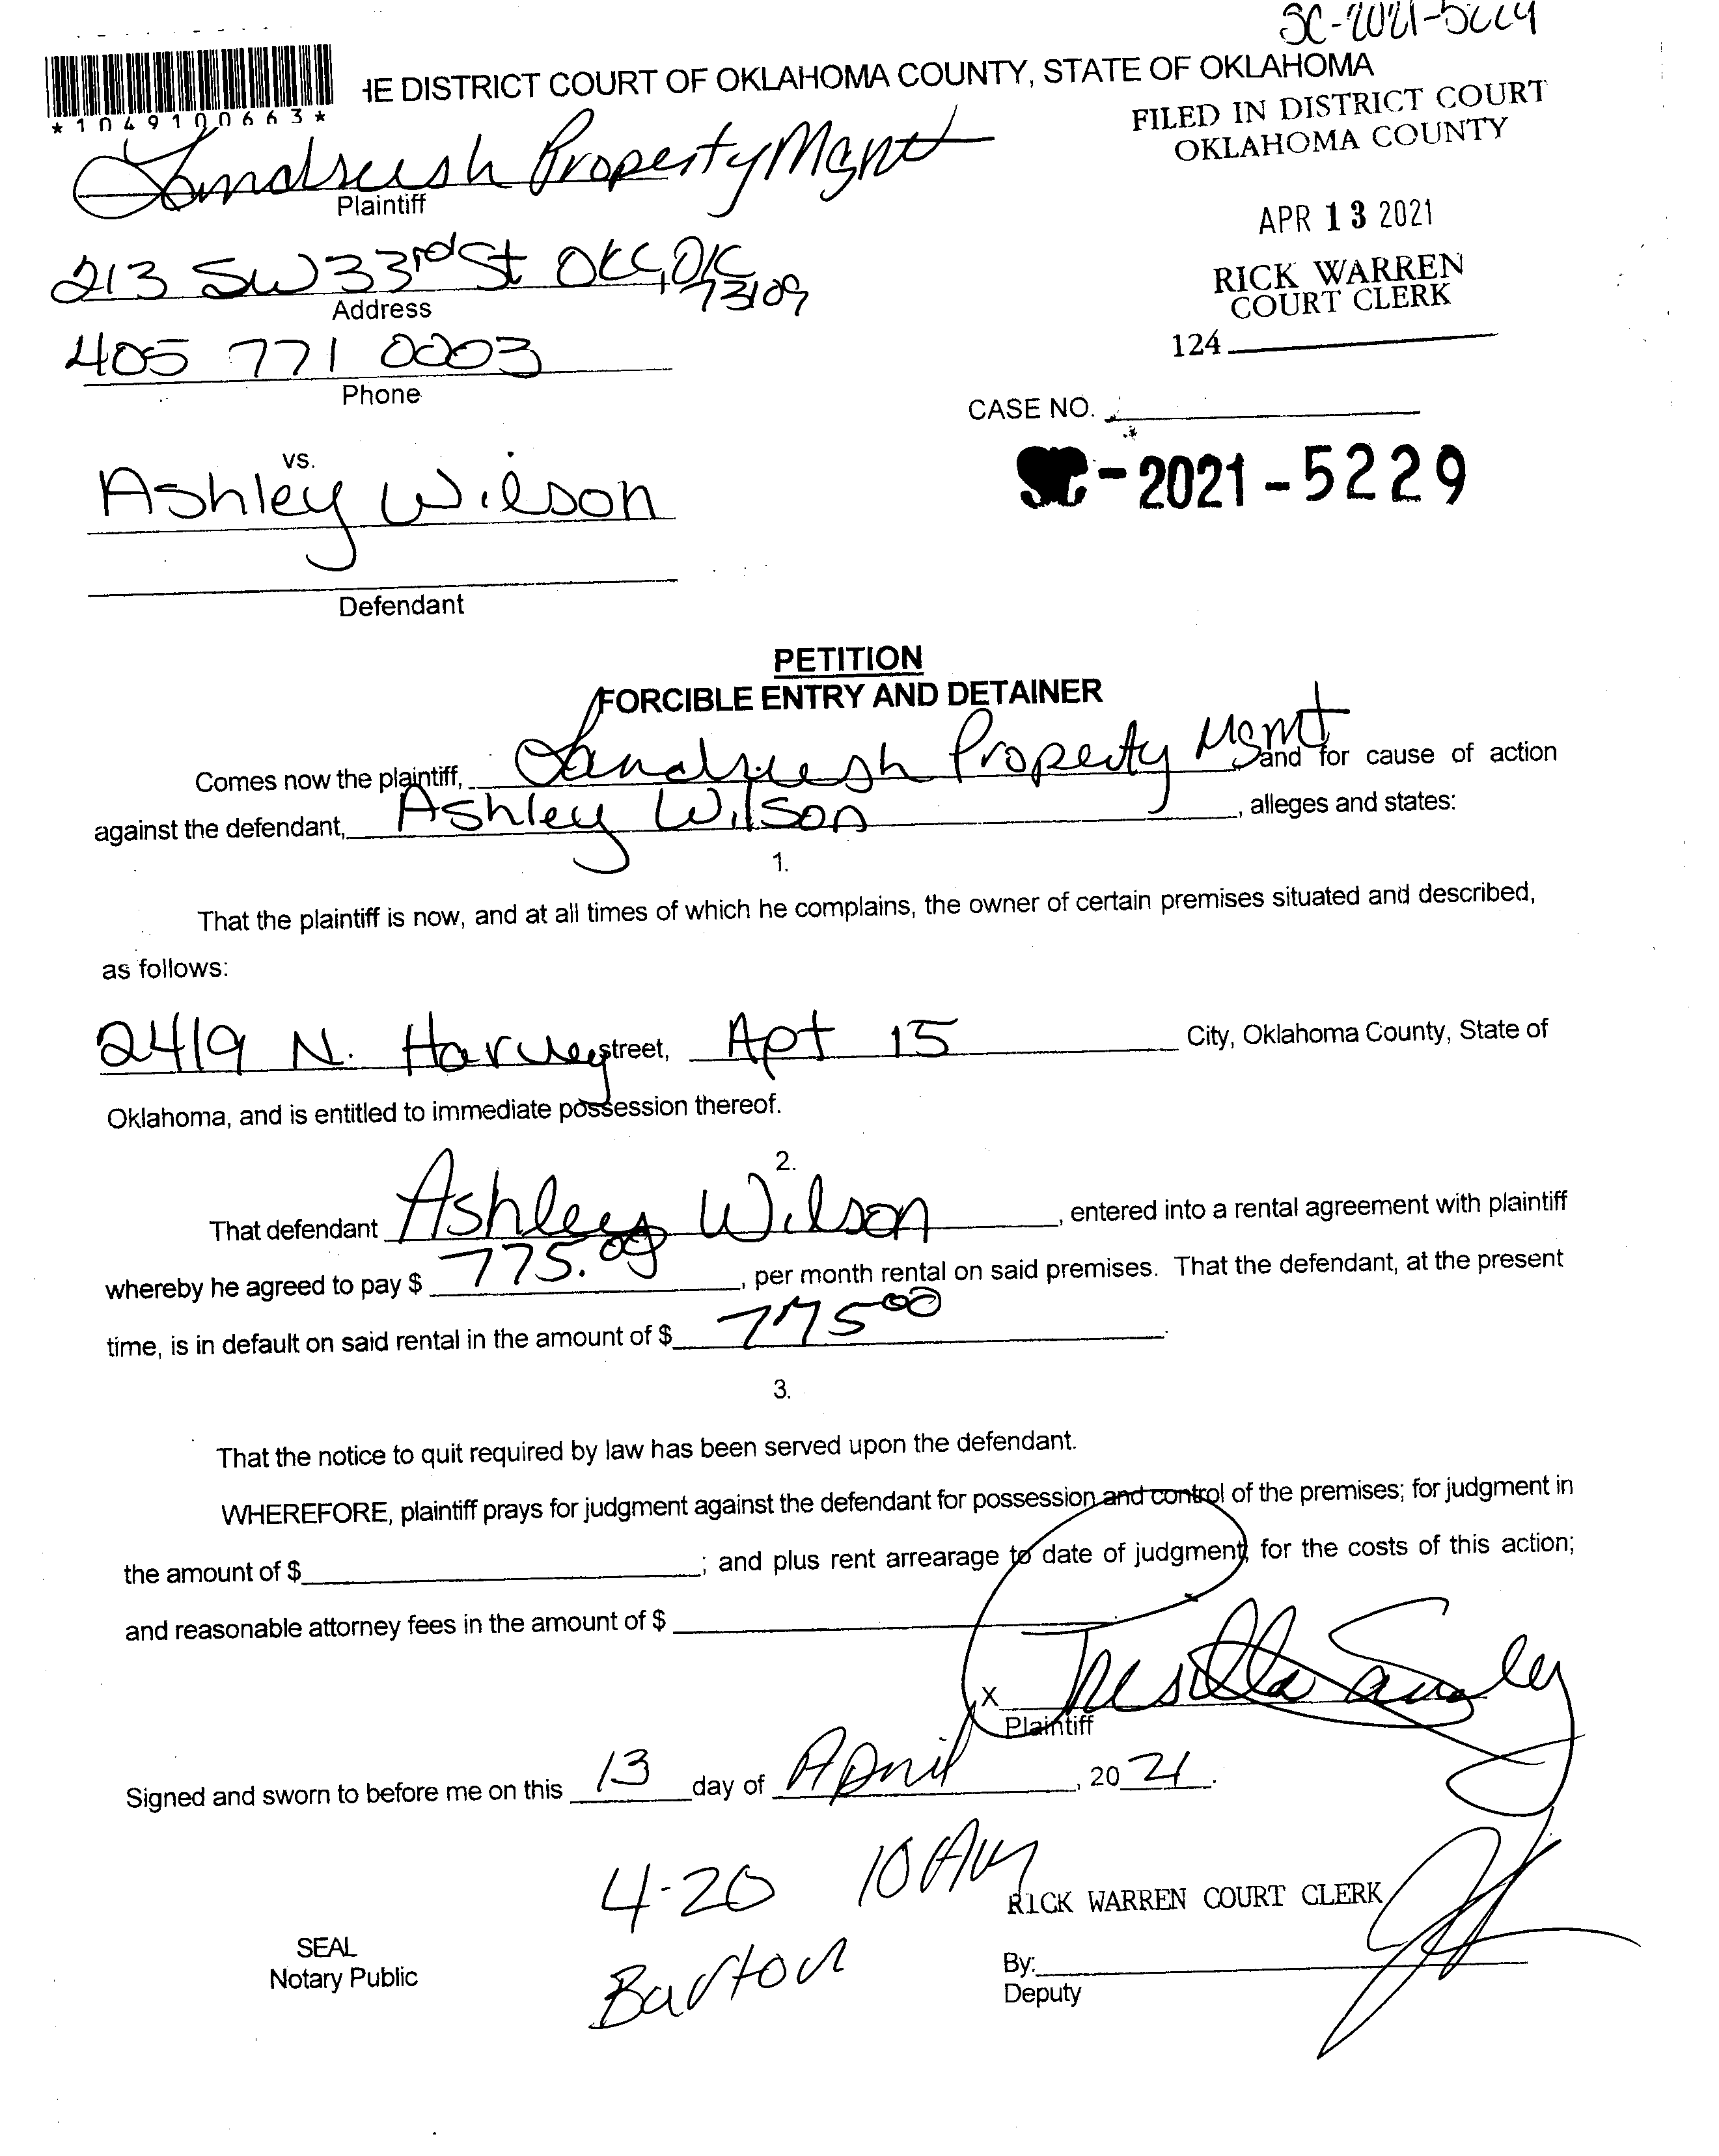 SC-2021-5229
HE DISTRICT COURT OF OKLAHOMA COUNTY, STATE OF OKLAHOMA
*1049100663*
FILED IN DISTRICT COURT
OKLAHOMA COUNTY
Landrush Property Mgmt
Plaintiff
APR 13 2021
213 SW 33rd St OKC, OK
73109
Address
RICK WARREN
COURT CLERK
405 771 0003
124
Phone
CASE NO.
vs.
SC-2021-5229
Ashley Wilson
Defendant
PETITION
FORCIBLE ENTRY AND DETAINER
Comes now the plaintiff, Landrush Property Mgmt, and for cause of action
against the defendant, Ashley Wilson, alleges and states:
1.
That the plaintiff is now, and at all times of which he complains, the owner of certain premises situated and described,
as follows:
2419 N. Harvey street, Apt 15 City, Oklahoma County, State of
Oklahoma, and is entitled to immediate possession thereof.
2.
That defendant Ashley Wilson, entered into a rental agreement with plaintiff
whereby he agreed to pay $ 775.00, per month rental on said premises. That the defendant, at the present
time, is in default on said rental in the amount of $ 775 00.
3.
That the notice to quit required by law has been served upon the defendant.
WHEREFORE, plaintiff prays for judgment against the defendant for possession and control of the premises; for judgment in
the amount of $ ; and plus rent arrearage to date of judgment, for the costs of this action;
and reasonable attorney fees in the amount of $
X
Plaintiff
Signed and sworn to before me on this 13 day of April, 2021.
4-20 10 AM
RICK WARREN COURT CLERK
SEAL
Notary Public
Barton
By:
Deputy